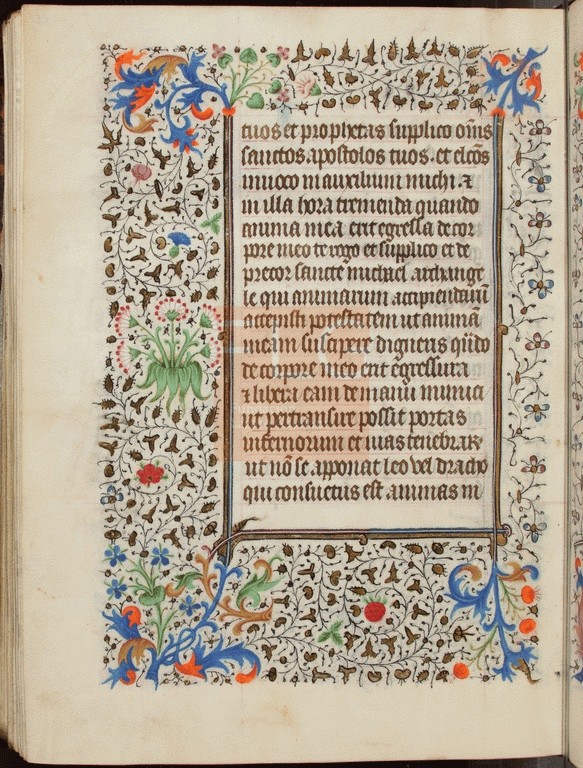 tuos et prophetas supplico om̄s
sanctos apostolos tuos. et elc̄os
inuoco in auxilium michi. ⁊
in illa hora tremenda quando
anima mea erit egressa de cor
pore meo te rogo et supplico et de
precor sancte michael archange
le qui animarum accipiendarū
accepisti potestatem ut animā
meam suscipere digneris qn̄do
de corpore meo erit egressura
⁊ libera eam de manu inimici
ut pertransire possit portas
infernorum et uias tenebraꝝ
ut nō se apponat leo vel dracho
qui consuetus est animas in